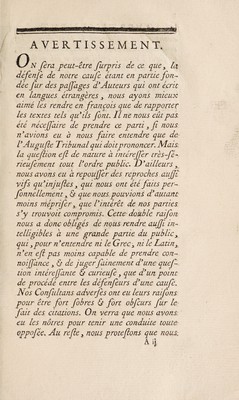 AVERTISSEMENT.
ON sera peut-être surpris de ce que, la
défense de notre cause étant en partie fon-
dée sur des passages d'Auteurs qui ont écrit
en langues étrangères, nous ayons mieux
aimé les rendre en françois que de rapporter
les textes tels qu'ils sont. Il ne nous eût pas
été nécessaire de prendre ce parti, si nous
n'avions eu à nous faire entendre que de
l'Auguste Tribunal qui doit prononcer. Mais
la question est de nature à intéresser très-sé-
rieusement tout l'ordre public. D'ailleurs,
nous avons eu à repousser des reproches aussi
vifs qu'injustes, qui nous ont été faits per-
sonnellement, & que nous pouvions d'autant
moins mépriser, que l'intérêt de nos parties
s'y trouvoit compromis. Cette double raison
nous a donc obligés de nous rendre aussi in-
telligibles à une grande partie du public,
qui, pour n'entendre ni le Grec, ni le Latin,
n'en est pas moins capable de prendre con-
noissance, & de juger sainement d'une ques-
tion intéressante & curieuse, que d'un point
de procédé entre les défenseurs d'une cause.
Nos Consultans adverses ont eu leurs raisons
pour être fort sobres & fort obscurs sur le
fait des citations. On verra que nous avons
eu les nôtres pour tenir une conduite toute
opposée. Au reste, nous protestons que nous
A ij